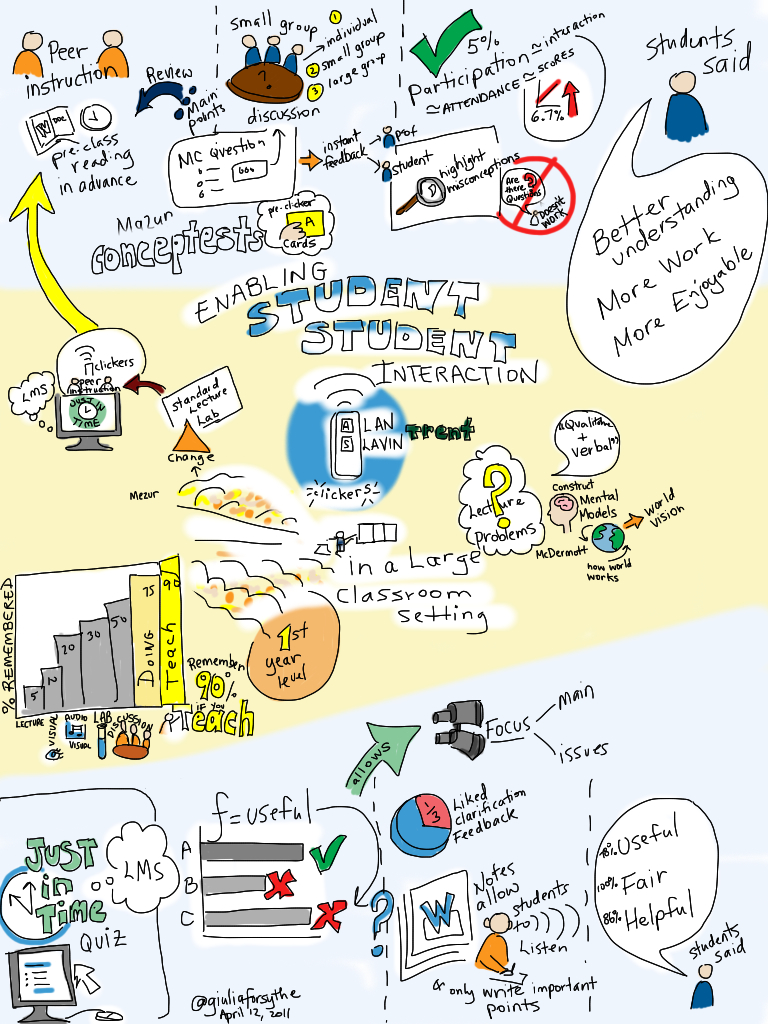 Peer
instruction
Review
Main
points
DOC
pre-class
reading
in advance
small group
discussion
1
individual
2 small group
3 large group
?
MC Question
instant
feedback
prof
student
5%
Participation ≈ interaction
≈ ATTENDANCE ≈ SCORES
6.7%
highlight
misconceptions
Are
there ?
Questions
Doesn't
work
Mazur
conceptests
pre-clicker
A
cards
students
said
Better
understanding
More Work
More Enjoyable
ENABLING
STUDENT
STUDENT
INTERACTION
clickers
peer
instruction
LMS
JUST IN
TIME
Standard
Lecture
Lab
change
Mezur
A
S
LAN
LAVIN
Trent
clickers
in a Large
classroom
setting
1st
year
level
?
Lecture
Problems
"Qualitative
+
Verbal"
construct
Mental
Models
McDermott
how world
works
world
vision
% REMEMBERED
5
20
30
50
75
90
DOING
Teach
LECTURE
VISUAL
AUDIO
VISUAL
LAB
DISCUSSION
Remember
90%
IF YOU
Teach
allows
Focus
Main
issues
JUST
in
TIME
QUIZ
LMS
f = useful
A
B
C
?
1/3
Liked
clarification
Feedback
W
Notes
allow
students
to
Listen
& only write important
points
Useful
100% Fair
86% Helpful
students
said
@giuliaforsythe
April 12, 2011